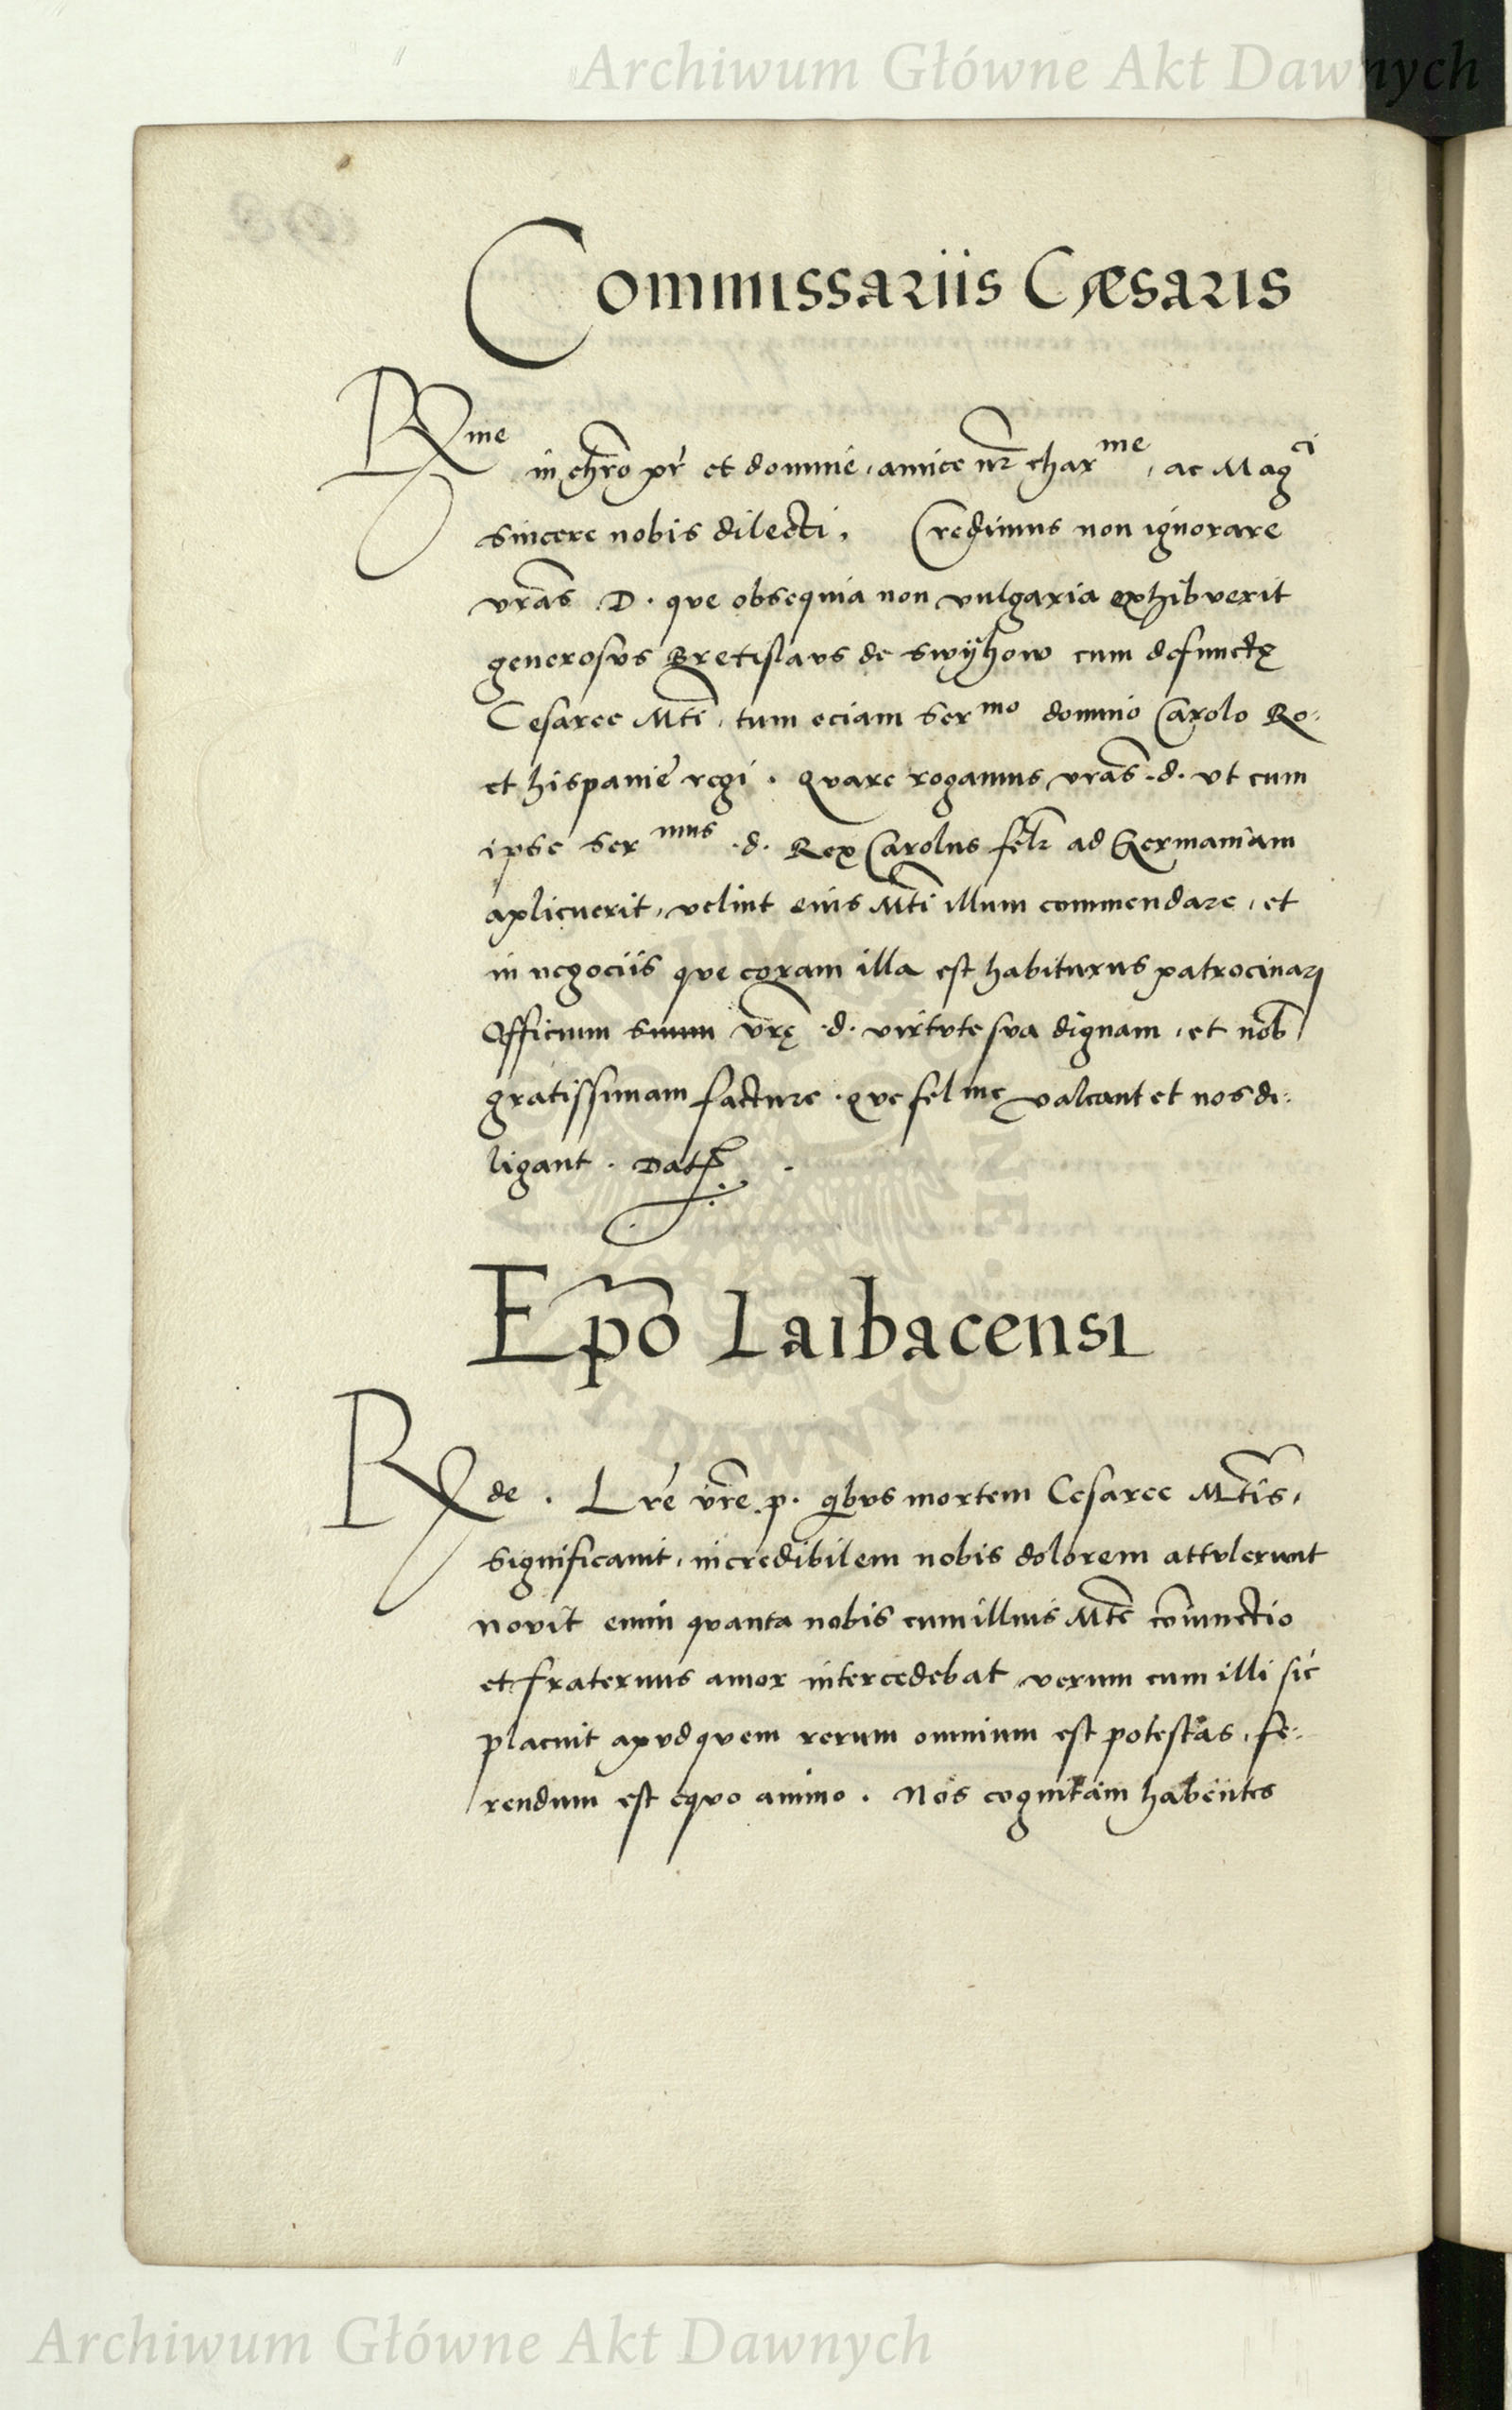 Archiwum Główne Akt Dawnych
Commissariis Cæsaris
Rme in chro pr et domine, amice nr char me, ac Mag ci
sincere nobis dilecti. Credimus non ignorare
vras D. que obsequia non vulgaria exhibverit
generosvs Bretislavs de Swÿhow cum defunctę
Cesaree Mti, tum eciam Ser mo domino Carolo Ro:
et hispanie regi. Qvare rogamus vras .d. vt cum
ipse Ser mus .d. Rex Carolus felr ad Germaniam
aplicuerit, velint eius Mti illum commendare, et
in negociis qve coram illa est habiturus patrocinari
Officium suum vrę .d. virtvte sva dignam, et nob
gratissimam facture. qve fel me valeant et nos di:
ligant. Dat
Epo Laibacensi
Rde. Lre vre p. qbvs mortem Cesaree Mtis,
significavit, incredibilem nobis dolorem attvlerunt
novit enim qvanta nobis cum illius Mte coniunctio
et fraternus amor intercedebat verum cum illi sic
placuit apvd qvem rerum omnium est potestas, fe:
rendum est eqvo animo. Nos cognitam habentes
Archiwum Główne Akt Dawnych